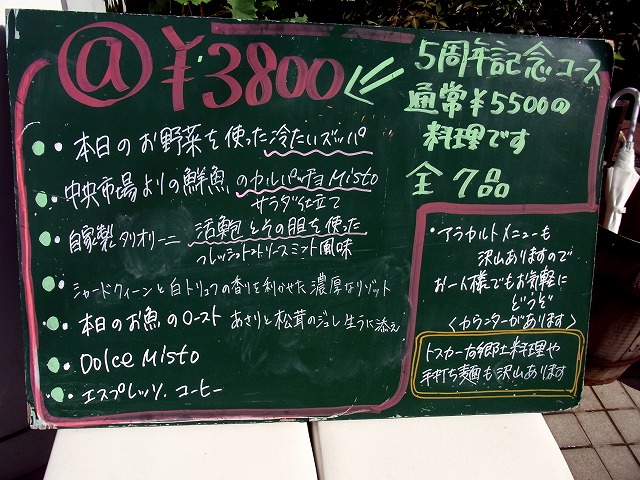 @ ¥3800
5周年記念コース
通常¥5500の
料理です
全7品
・本日のお野菜を使った冷たいズッパ
・中央市場よりの鮮魚のカルパッチョMisto
サラダ仕立て
・自家製タリオリーニ 活鮑とその胆を使った
フレッシュトマトソースミント風味
・シャードクィーンと白トリュフの香りを利かせた濃厚なリゾット
・本日のお魚のロースト あさりと松茸のジュレ 生うに添え
・Dolce Misto
・エスプレッソ.コーヒー
・アラカルトメニューも
沢山ありますので
お一人様でもお気軽に
どうぞ
<カウンターがあります>
トスカーナ郷土料理や
手打ち麺も沢山あります